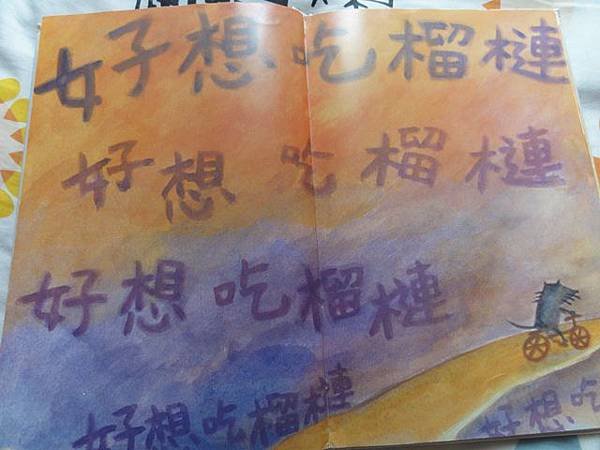 好想吃榴槤
好想吃榴槤
好想吃榴槤
好想吃榴槤
好想吃